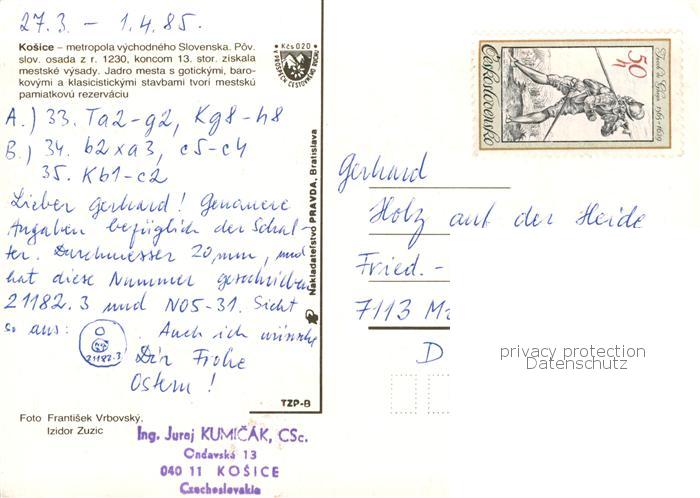 27.3. – 1.4.85.
Košice – metropola východného Slovenska. Pôv.
slov. osada z r. 1230, koncom 13. stor. získala
mestské výsady. Jadro mesta s gotickými, baro-
kovými a klasicistickými stavbami tvorí mestskú
pamiatkovú rezerváciu
Kčs 020
V PROSPECH CESTOVNÉHO RUCHU
A.) 33. Ta2-g2, Kg8-h8
B.) 34. b2xa3, c5-c4
35. Kb1-c2
Lieber Gerhard! Genauere
Angaben bezüglich der Schal-
ter. Durchmesser 20 mm, und
hat diese Nummer geschrieben
21182.3 und N05-31. Sieht
so aus:
21182.3
Auch ich wünsche
Dir Frohe
Ostern!
Nakladateľstvo PRAVDA, Bratislava
TZP-B
Foto František Vrbovský,
Izidor Zuzic
Ing. Juraj KUMIČÁK, CSc.
Ondavská 13
040 11 KOŠICE
Czechoslovakia
50 h
Československo
1565-1629
Gerhard
Holz auf der Heide
Fried.-
7113
D
privacy protection
Datenschutz